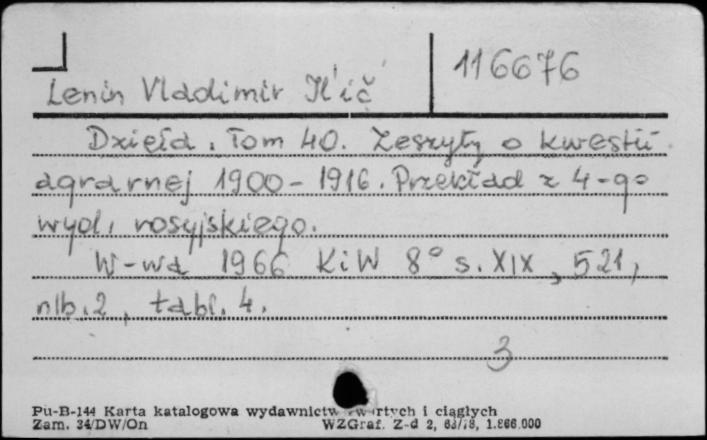 116676
Lenin Vladimir Il'ič
Dzieła. Tom 40. Zeszyty o kwestii
agrarnej 1900-1916. Przekład z 4-go
wyd. rosyjskiego.
W-wa 1966 KiW 8° s. XIX, 521,
nlb. 2, tabl. 4.
3
Pu-B-144 Karta katalogowa wydawnictw zwartych i ciągłych
Zam. 34/DW/On WZGraf. Z-d 2, 63/78, 1.866.000